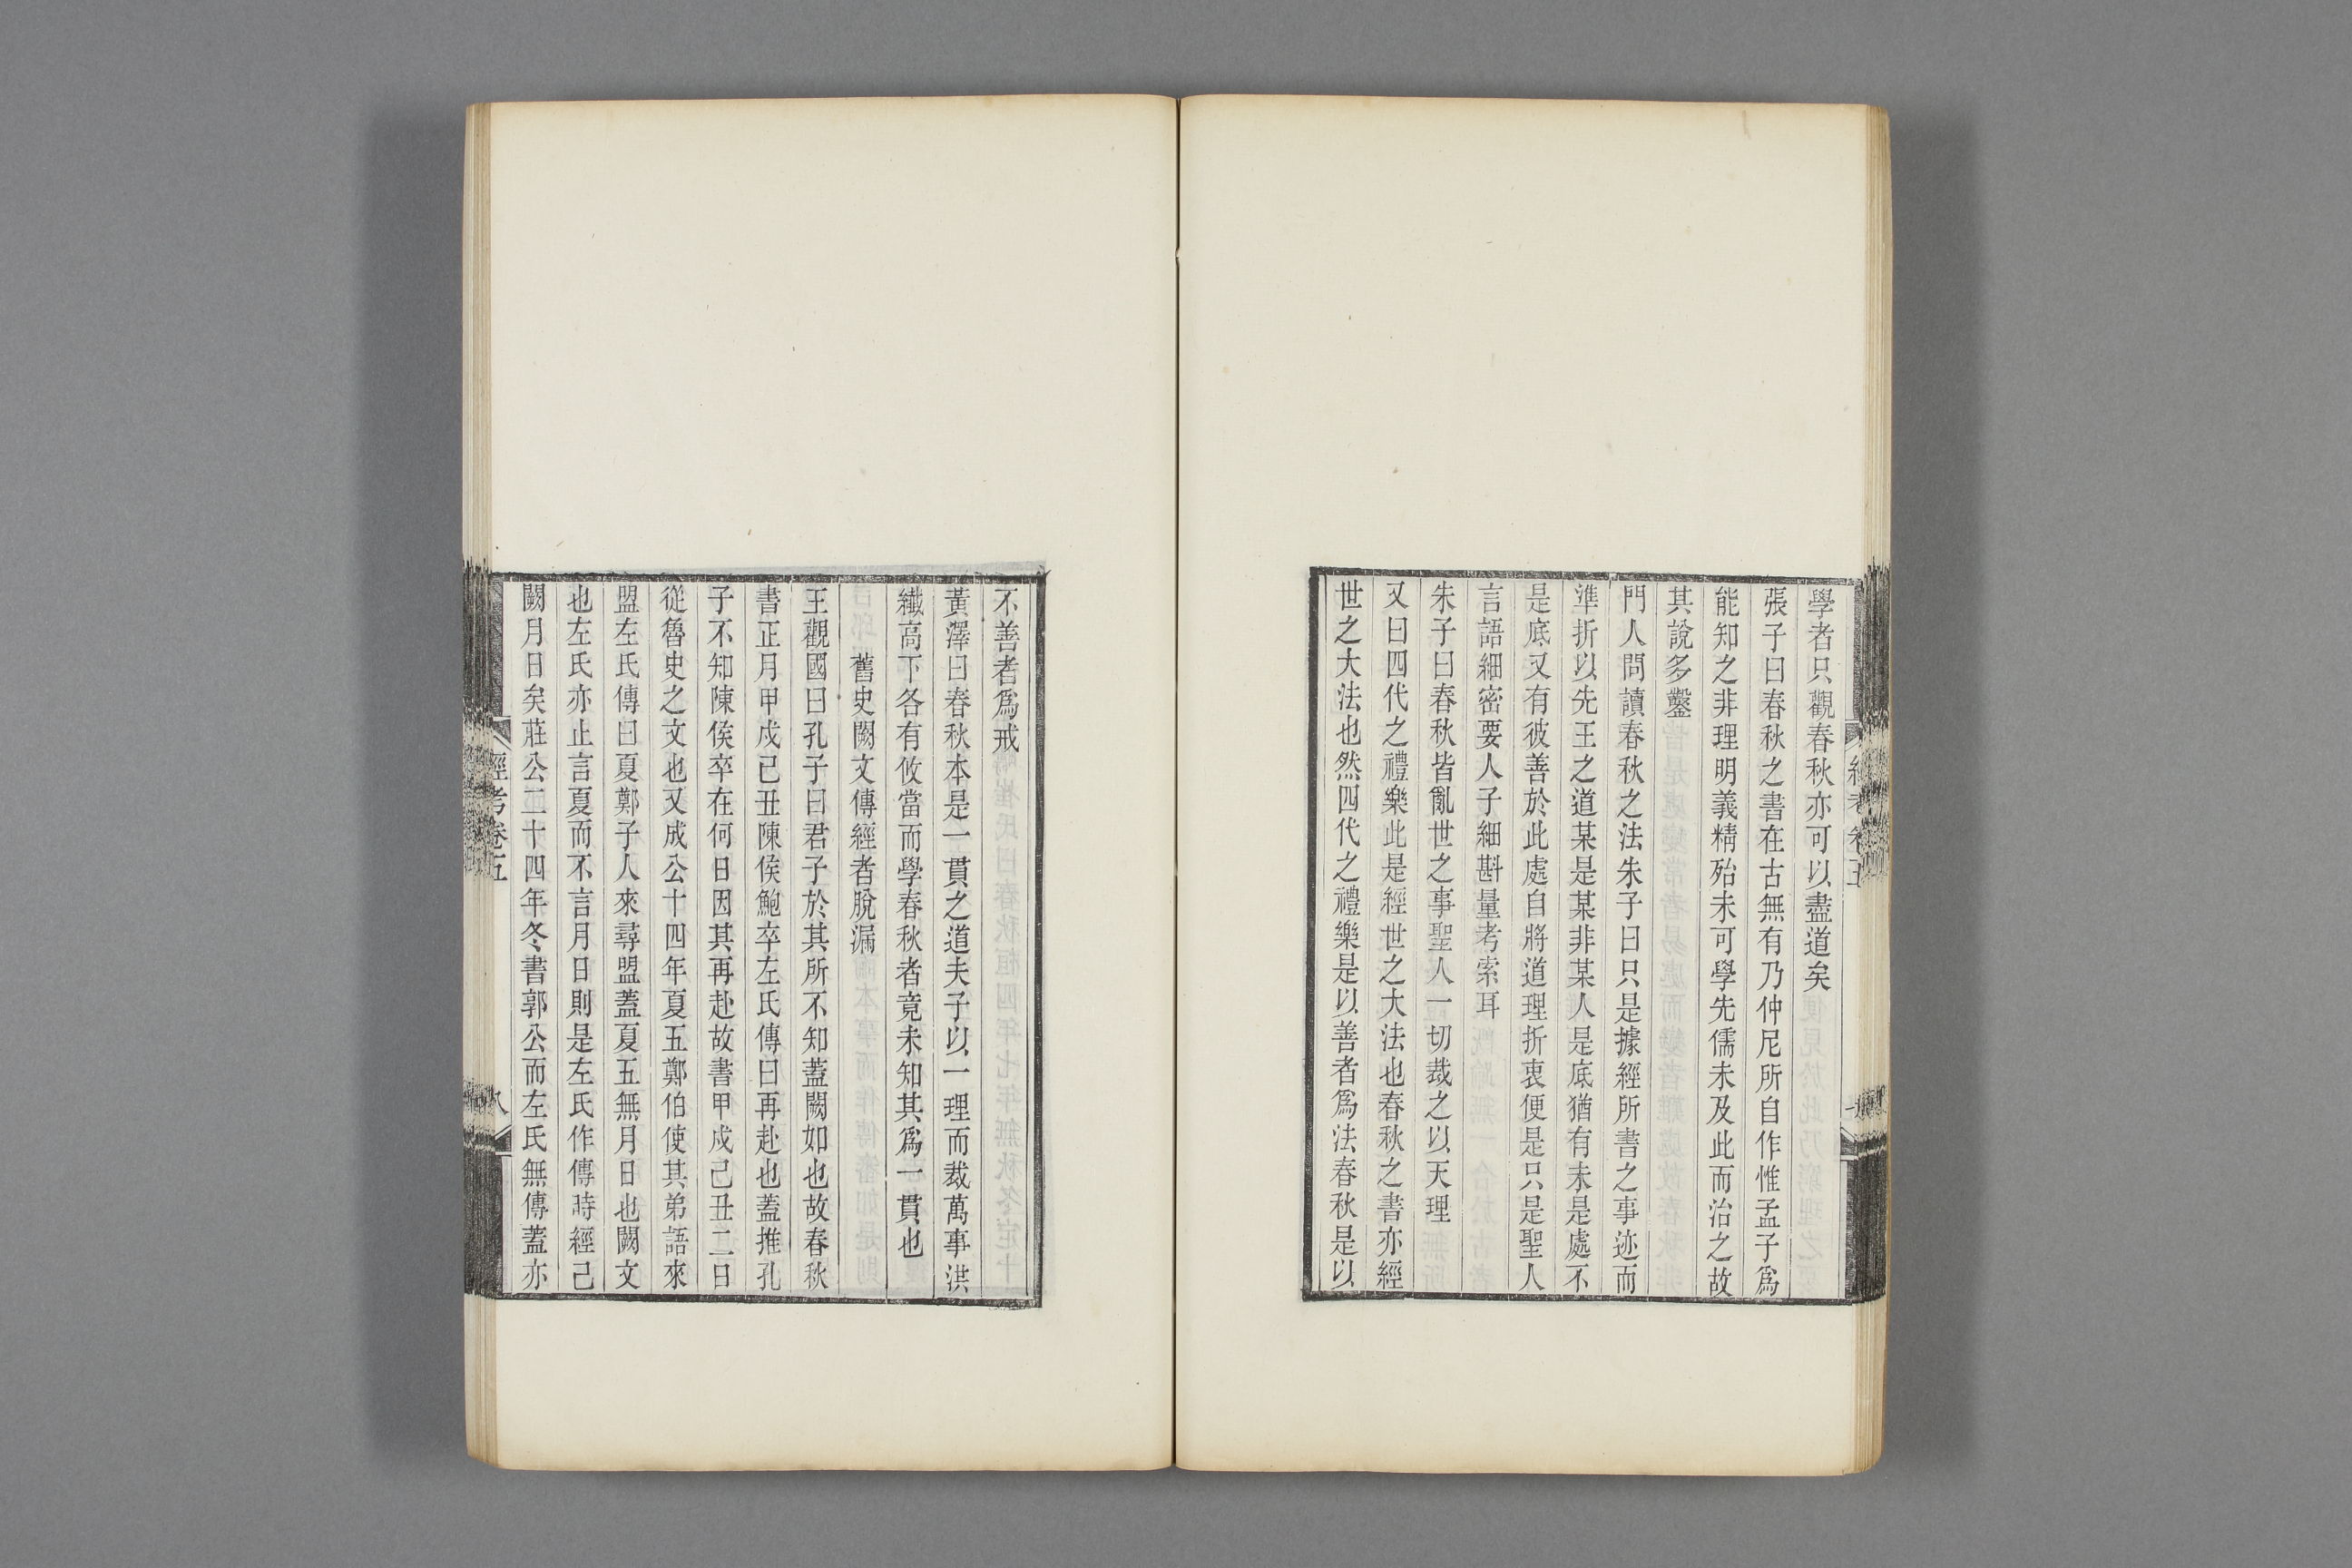 學者只觀春秋亦可以盡道矣
張子曰春秋之書在古無有乃仲尼所自作惟孟子爲
能知之非理明義精殆未可學先儒未及此而治之故
其說多鑿
門人問讀春秋之法朱子曰只是據經所書之事迹而
準折以先王之道某是某非某人是底猶有未是處不
是底又有彼善於此處自將道理折衷便是只是聖人
言語細密要人子細斟量考索耳
朱子曰春秋皆亂世之事聖人一切裁之以天理
又曰四代之禮樂此是經世之大法也春秋之書亦經
世之大法也然四代之禮樂是以善者爲法春秋是以
不善者爲戒
黃澤曰春秋本是一貫之道夫子以一理而裁萬事洪
纖高下各有攸當而學春秋者竟未知其爲一貫也
舊史闕文傳經者脫漏
王觀國曰孔子曰君子於其所不知蓋闕如也故春秋
書正月甲戍己丑陳侯鮑卒左氏傳曰再赴也蓋推孔
子不知陳侯卒在何日因其再赴故書甲戍己丑二日
從魯史之文也又成公十四年夏五鄭伯使其弟語來
盟左氏傳曰夏鄭子人來尋盟蓋夏五無月日也闕文
也左氏亦止言夏而不言月日則是左氏作傳時經已
闕月日矣莊公二十四年冬書郭公而左氏無傳蓋亦
經考卷五
八